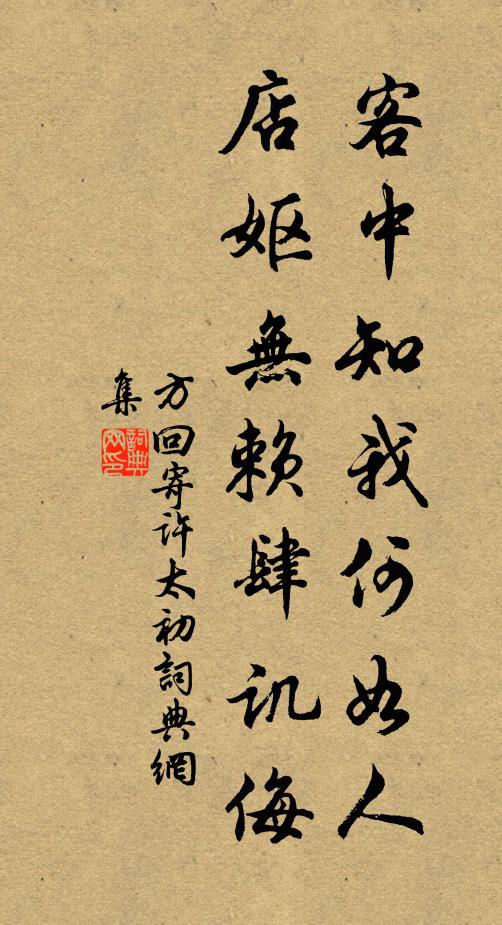 客中知我何如人
店妪無赖肆讥侮
方回寄许太初詞典網
集
詞典網印